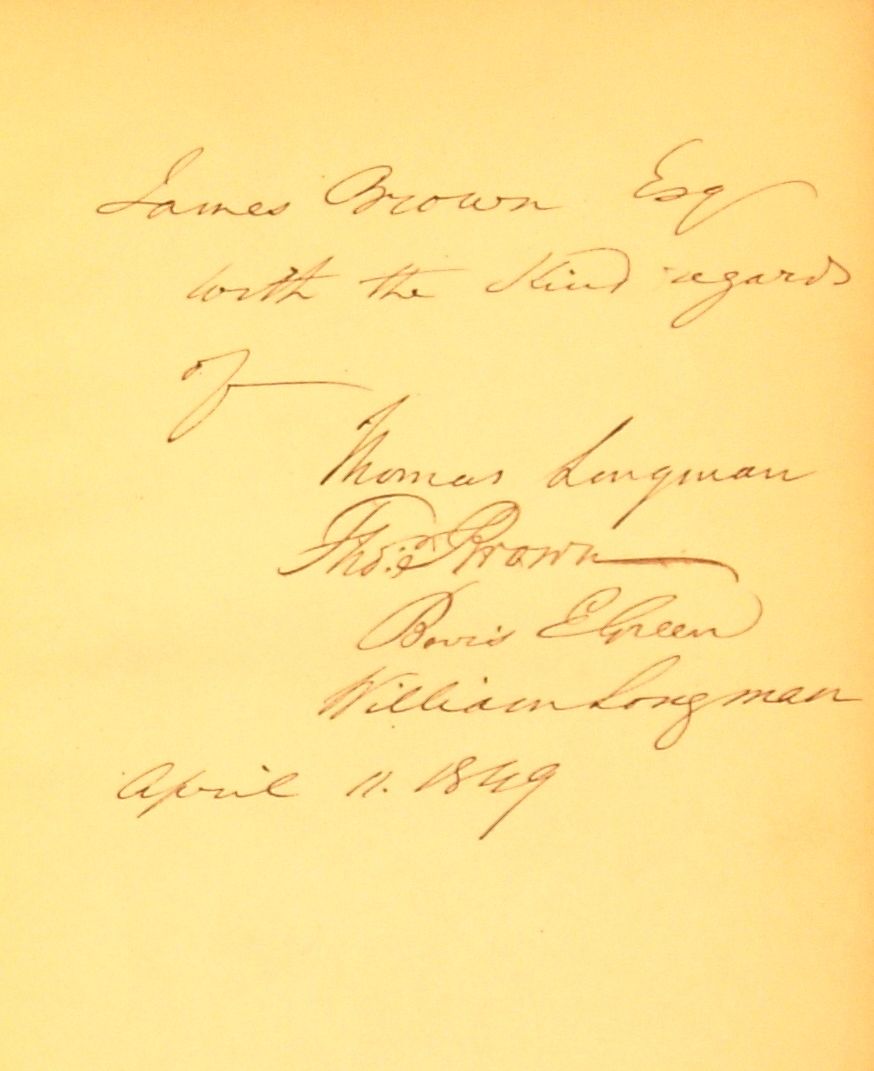 James Brown Esq
with the Kind regards
of
Thomas Longman
Thos. Brown
Bevis E Green
William Longman
April 11. 1849